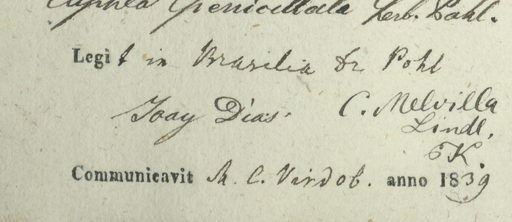 Cuphea penicillata herb. Pohl.
Legit in Brasilia Dr Pohl
Joaq Dias. C. Melvilla
Lindl.
Communicavit M. C. Vindob. anno 1839